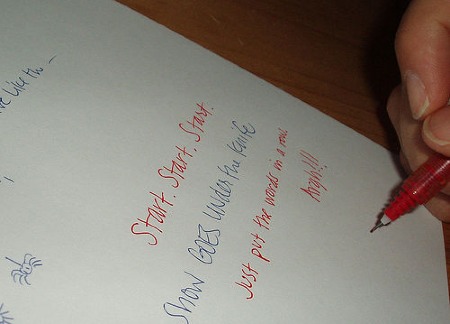 ve like th-
Start. Start. Start.
Show GOES Under the knife
Just put the words in a row.
Argh!!!